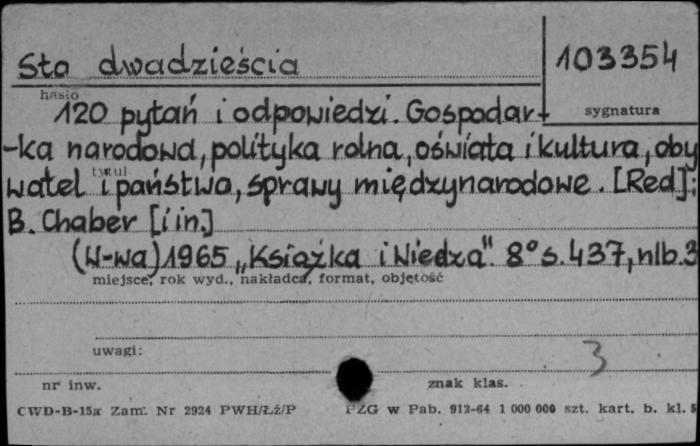 Sto dwadzieścia
103354
hasło
sygnatura
120 pytań i odpowiedzi. Gospodar-
-ka narodowa, polityka rolna, oświata i kultura, oby
tytuł
watel i państwo, sprawy międzynarodowe. [Red]:
B. Chaber [i in.]
(W-wa) 1965 „Książka i Wiedza". 8° s. 437, nlb. 3
miejsce, rok wyd., nakładca, format, objętość
uwagi:
3
nr inw.
znak klas.
CWD-B-15a Zam. Nr 2924 PWH/Łź/P
PZG w Pab. 912-64 1 000 000 szt. kart. b. kl. 5